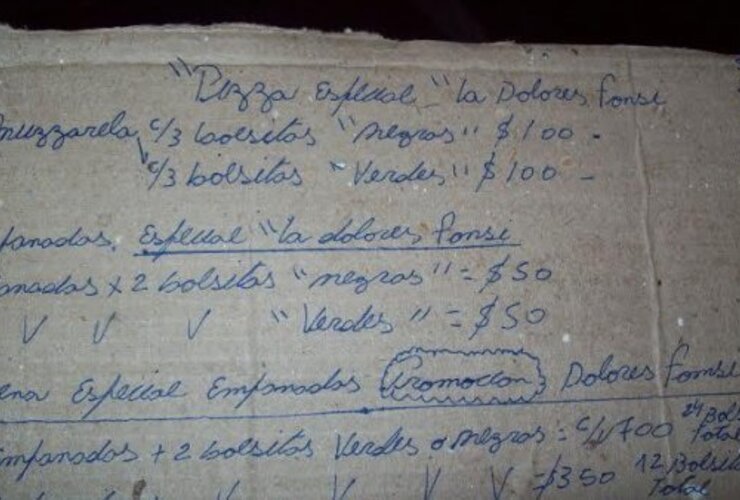 "Pizza Especial "la Dolores Fonsi
muzzarela c/3 bolsitas "negras" $100 -
c/3 bolsitas "Verdes" $100 -
panadas, Especial "la dolores fonsi
anadas x 2 bolsitas "negras" = $50
V V V "Verdes" = $50
ena Especial Empanadas Promocion Dolores Fonsi
mpanadas + 2 bolsitas Verdes o negras = c/u 700 24 Bols Total
V V V = $350 12 Bolsit Total